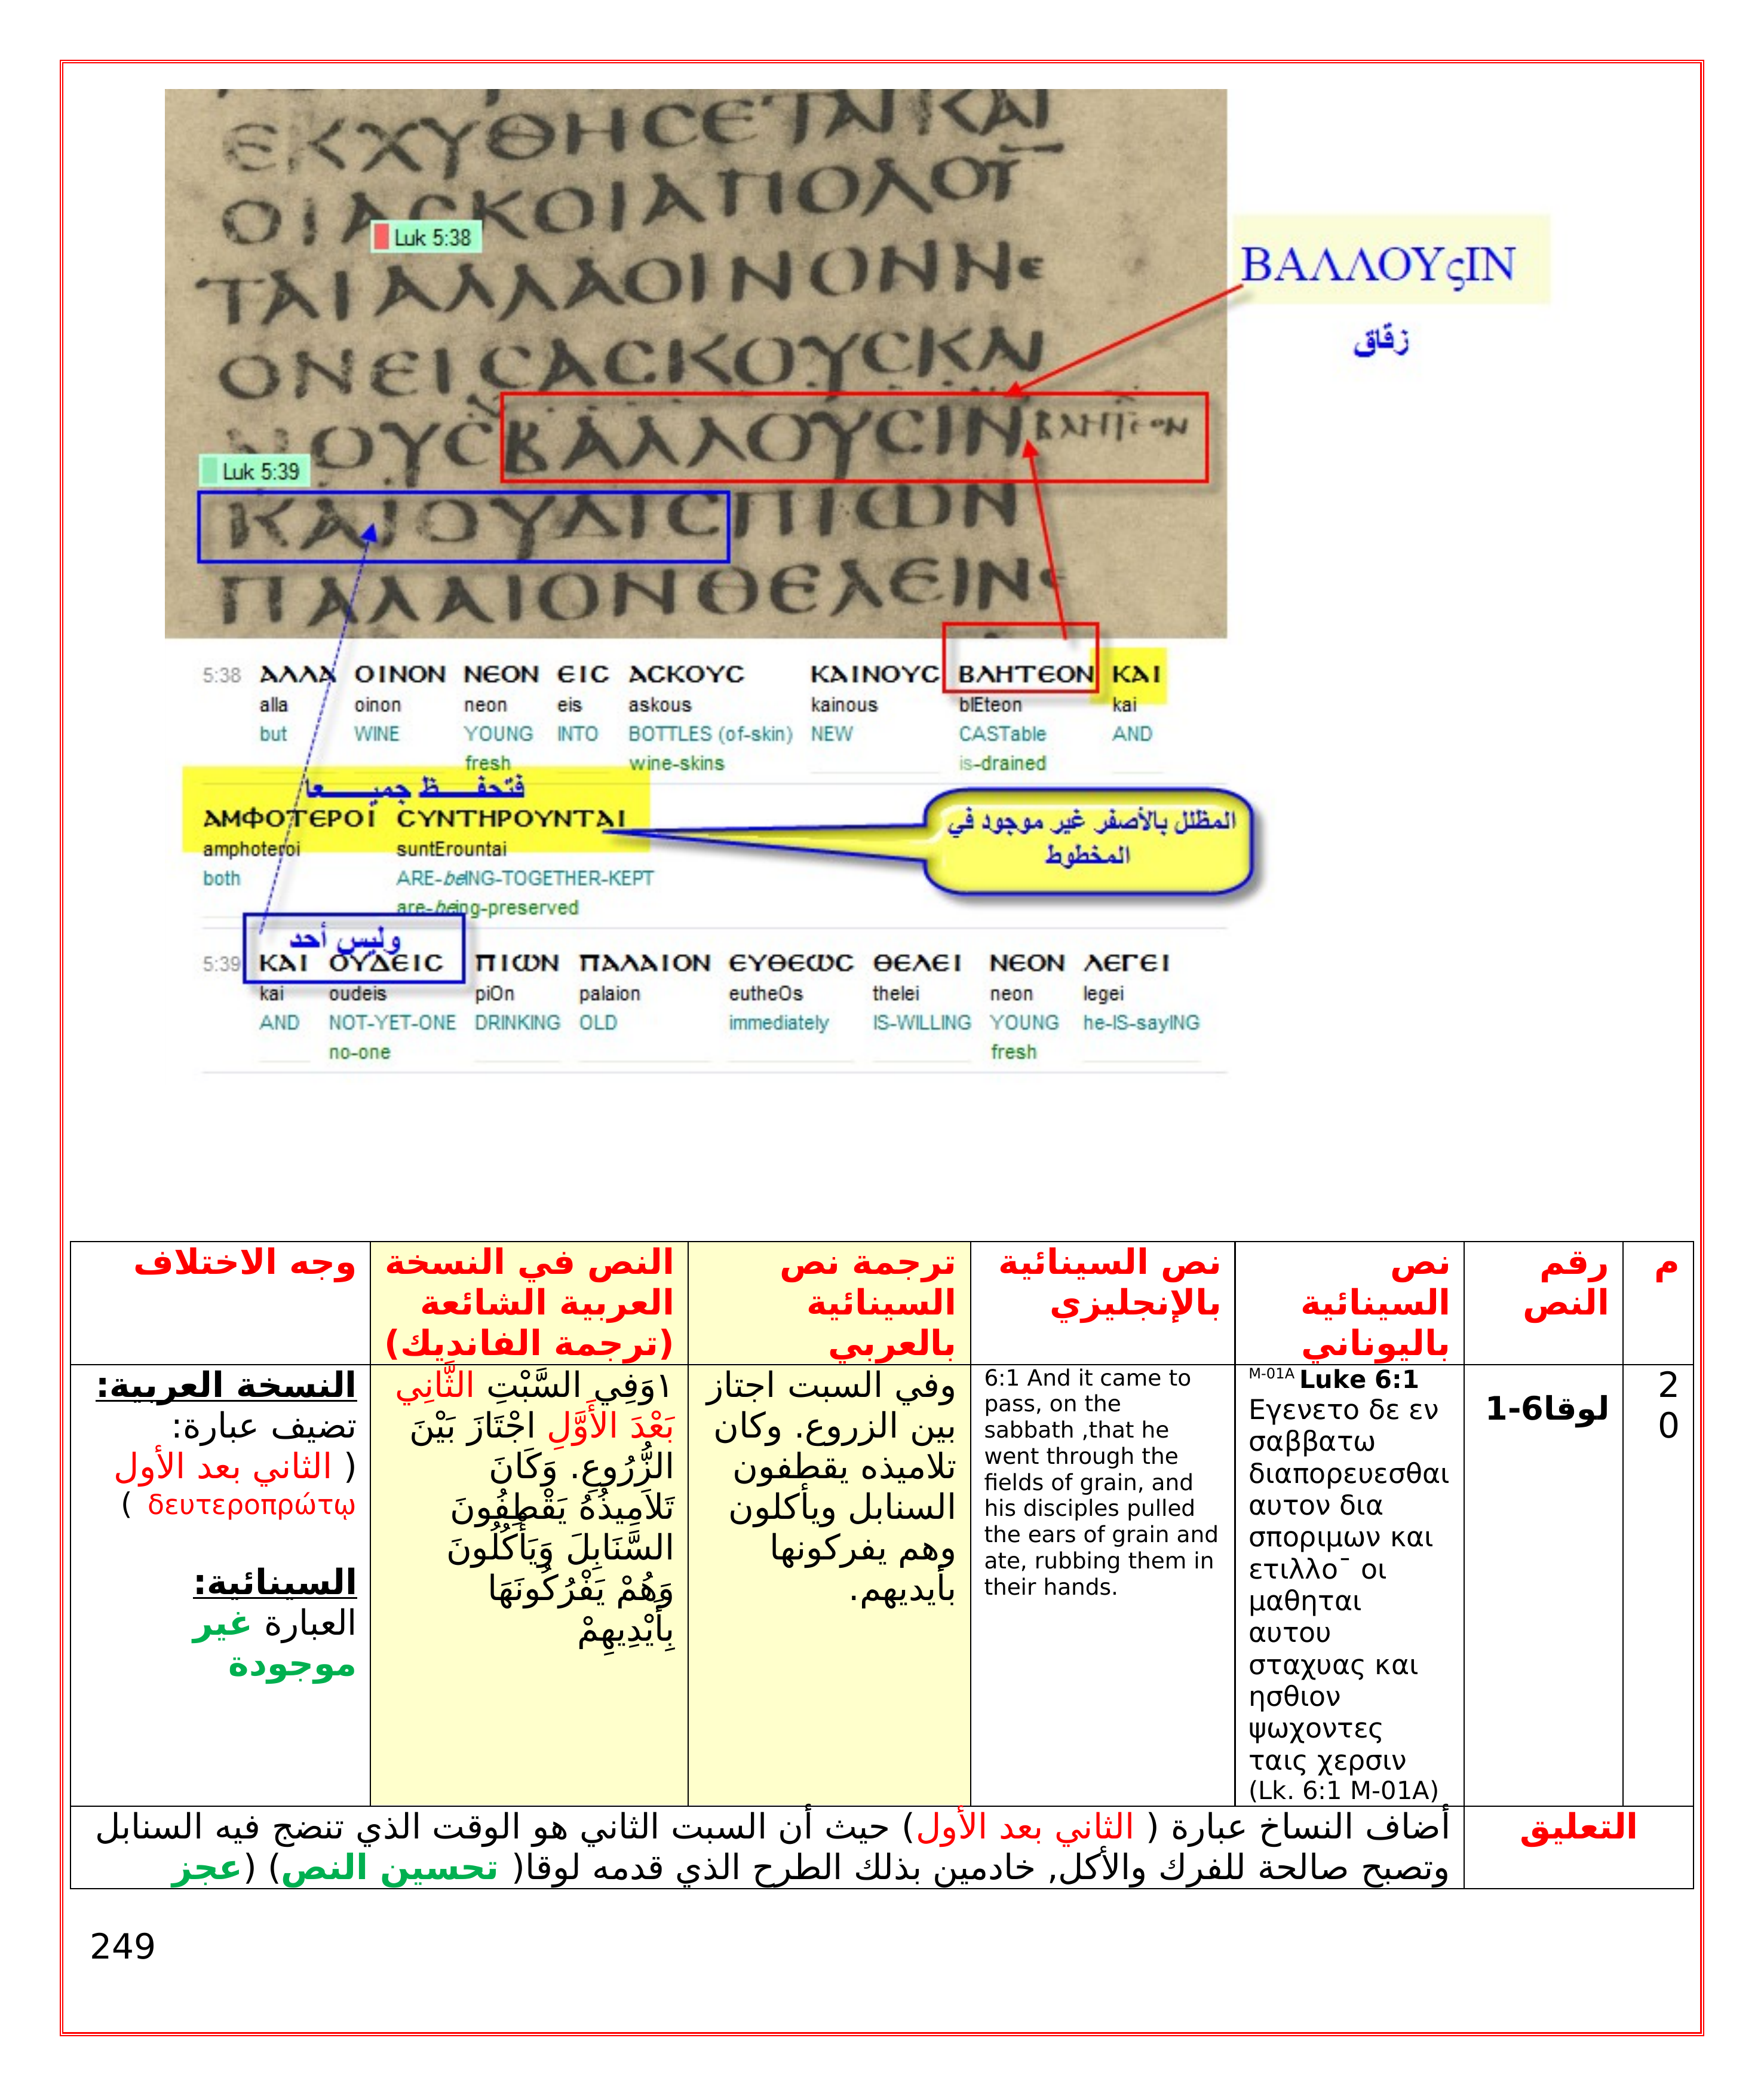 ΕΚΧΥΘΗCΕΤΑΙΚΑΙ
ΟΙΑCΚΟΙΑΠΟΛΟΥ
Luk 5:38
ΤΑΙΑΛΛΑΟΙΝΟΝΝΕ
ΟΝΕΙCΑCΚΟΥCΚΑΙ
ΝΟΥCΒΑΛΛΟΥCΙΝ ΒΛΗΤΕΟΝ
Luk 5:39
ΚΑΙΟΥΔΙCΠΙΩΝ
ΠΑΛΑΙΟΝΘΕΛΕΙΝΕ
ΒΑΛΛΟΥςΙΝ
زقاق
5:38 ΑΛΛΑ ΟΙΝΟΝ ΝΕΟΝ ΕΙC ΑCΚΟΥC ΚΑΙΝΟΥC ΒΛΗΤΕΟΝ ΚΑΙ
alla oinon neon eis askous kainous blEteon kai
but WINE YOUNG INTO BOTTLES (of-skin) NEW CASTable AND
fresh wine-skins is-drained
فتحفـــظ جميـــــعا
ΑΜΦΟΤΕΡΟΙ CΥΝΤΗΡΟΥΝΤΑΙ
amphoteroi suntErountai
both ARE-beING-TOGETHER-KEPT
are-being-preserved
المظلل بالأصفر غير موجود في
المخطوط
وليس أحد
5:39 ΚΑΙ ΟΥΔΕΙC ΠΙΩΝ ΠΑΛΑΙΟΝ ΕΥΘΕΩC ΘΕΛΕΙ ΝΕΟΝ ΛΕΓΕΙ
kai oudeis piOn palaion eutheOs thelei neon legei
AND NOT-YET-ONE DRINKING OLD immediately IS-WILLING YOUNG he-IS-sayING
no-one fresh
م
رقم
النص
نص
السينائية
باليوناني
نص السينائية
بالإنجليزي
ترجمة نص
السينائية
بالعربي
النص في النسخة
العربية الشائعة
(ترجمة الفانديك)
وجه الاختلاف
2
0
لوقا6-1
M-01A Luke 6:1
Εγενετο δε εν
σαββατω
διαπορευεσθαι
αυτον δια
σποριμων και
ετιλλο¯ οι
μαθηται
αυτου
σταχυας και
ησθιον
ψωχοντες
ταις χερσιν
(Lk. 6:1 M-01A)
6:1 And it came to
pass, on the
sabbath ,that he
went through the
fields of grain, and
his disciples pulled
the ears of grain and
ate, rubbing them in
their hands.
وفي السبت اجتاز
بين الزروع. وكان
تلاميذه يقطفون
السنابل ويأكلون
وهم يفركونها
بأيديهم.
١وَفِي السَّبْتِ الثَّانِي
بَعْدَ الأَوَّلِ اجْتَازَ بَيْنَ
الزُّرُوعِ. وَكَانَ
تَلاَمِيذُهُ يَقْطِفُونَ
السَّنَابِلَ وَيَأْكُلُونَ
وَهُمْ يَفْرُكُونَهَا
بِأَيْدِيهِمْ
النسخة العربية:
تضيف عبارة:
( الثاني بعد الأول
δευτεροπρώτῳ )
السينائية:
العبارة غير
موجودة
التعليق
أضاف النساخ عبارة ( الثاني بعد الأول) حيث أن السبت الثاني هو الوقت الذي تنضج فيه السنابل
وتصبح صالحة للفرك والأكل, خادمين بذلك الطرح الذي قدمه لوقا( تحسين النص) (عجز
249